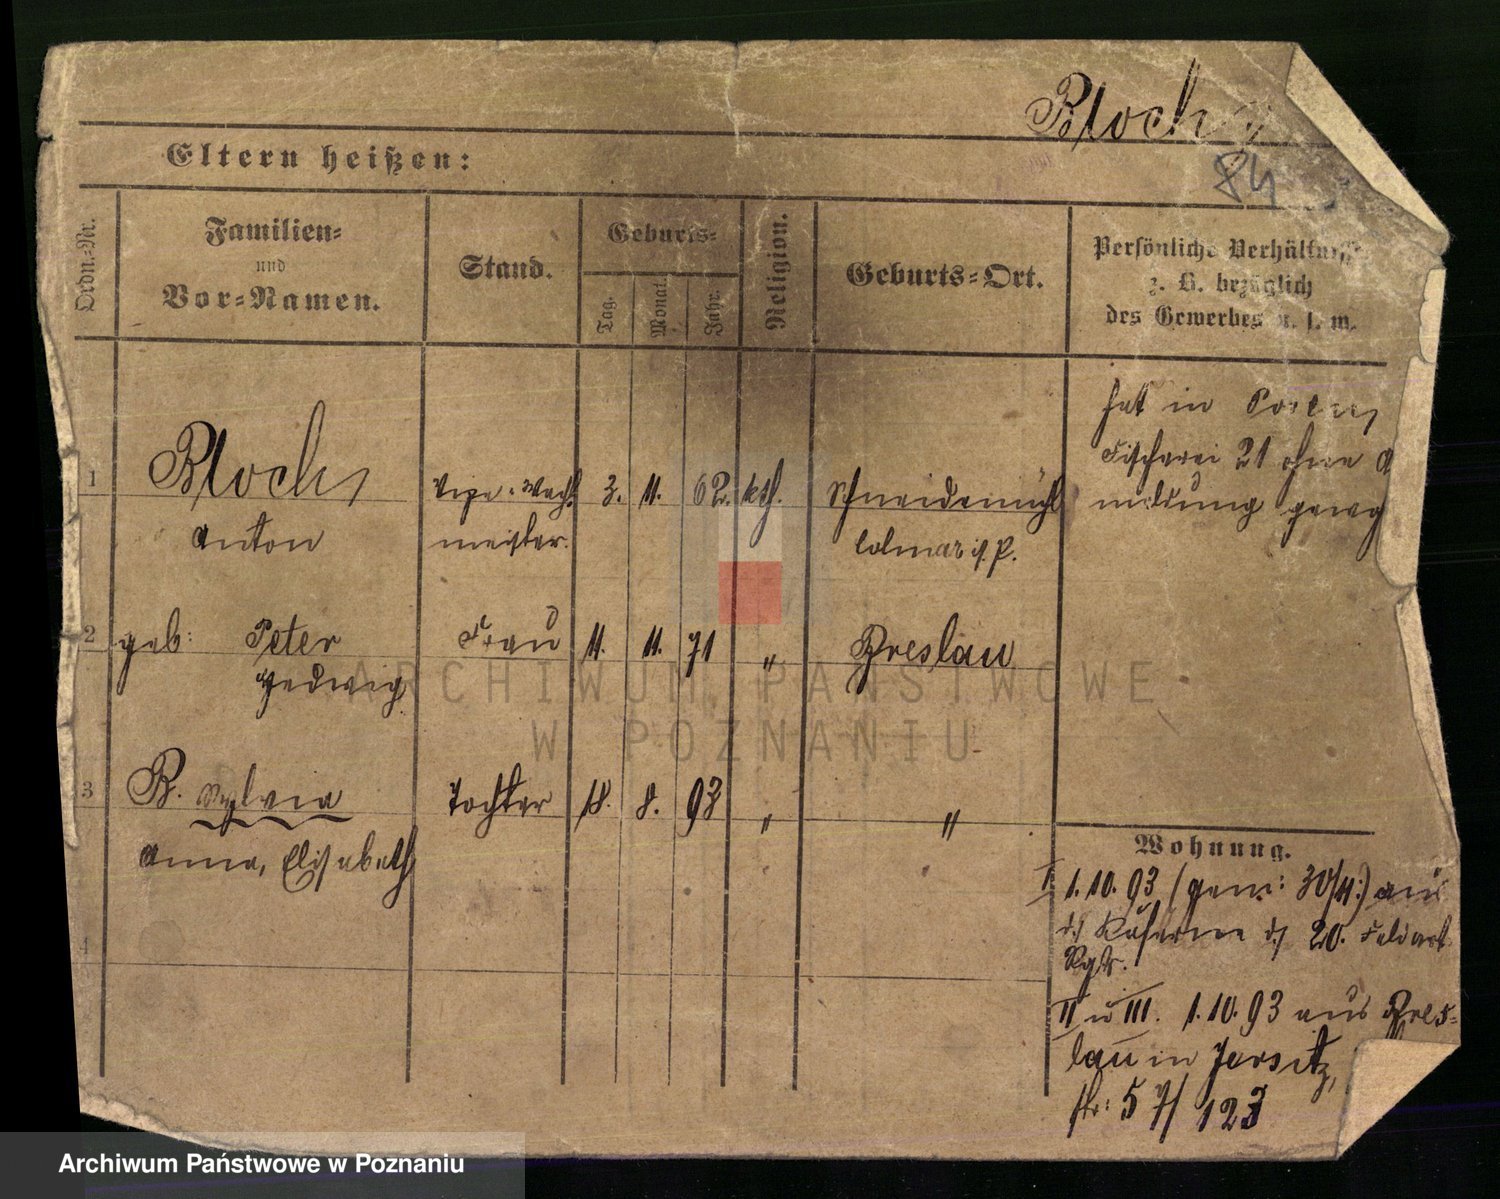 Bloch
84
Eltern heißen:
Ordn.-Nr.
Familien-
und
Vor-Namen.
Stand.
Geburts-
Tag.
Monat.
Jahr.
Religion.
Geburts-Ort.
Persönliche Verhältnisse
z. B. bezüglich
des Gewerbes u. s. w.
1 Bloch, Vize-Wacht 3. 11. 62. kth. Schneidemühl
Anton meister. Colmar i. P.
hat in Posen,
Fischerei 21 ohne
meldung gew
2 geb: Peter Frau 11. 11. 71 " Breslau
Hedwig
3 B. Sylvia Tochter 18. 8. 93 " "
Anna, Elisabeth
4
Wohnung.
I. 1.10.93 (gem: 30/11:) aus
d. Kaserne d. 20. Feldart
Rgts.
II u III. 1.10.93 aus Bres-
lau in Jersitz,
57/123
ARCHIWUM PAŃSTWOWE
W POZNANIU
Archiwum Państwowe w Poznaniu